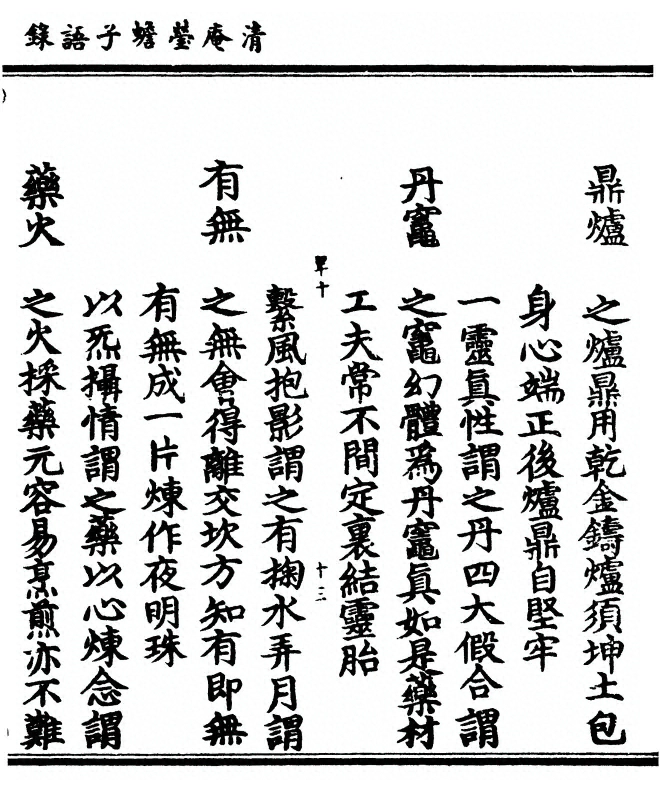 清庵瑩蟾子語錄
鼎爐　之爐鼎用乾金鑄爐須坤土包
身心端正後爐鼎自堅牢
一靈眞性謂之丹四大假合謂
丹竈　之竈幻體爲丹竈眞如是藥材
工夫常不間定裏結靈胎
罩十　十三
繫風抱影謂之有掬水弄月謂
有無　之無會得離交坎方知有即無
有無成一片煉作夜明珠
以炁攝情謂之藥以心煉念謂
藥火　之火採藥元容易烹煎亦不難